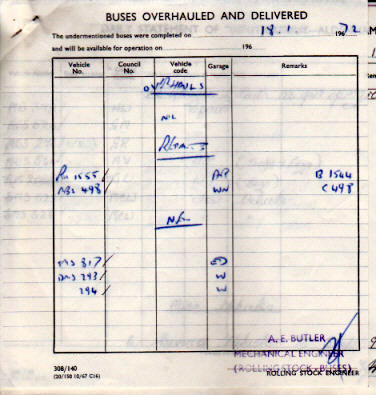 BUSES OVERHAULED AND DELIVERED
The undermentioned buses were completed on 18.1. 196 72
and will be available for operation on 196
Vehicle No. Council No. Vehicle code Garage Remarks
OVERHAULS
NIL
REPAIRS
RM 1555 / AP B 1544
RMS 498 / WN C498
NEW
DMS 317 /
DMS 293 / W
294 / W
A. E. BUTLER
MECHANICAL ENGINEER
(ROLLING STOCK - BUSES)
ROLLING STOCK ENGINEER
308/140
(20/150 10/67 C16)